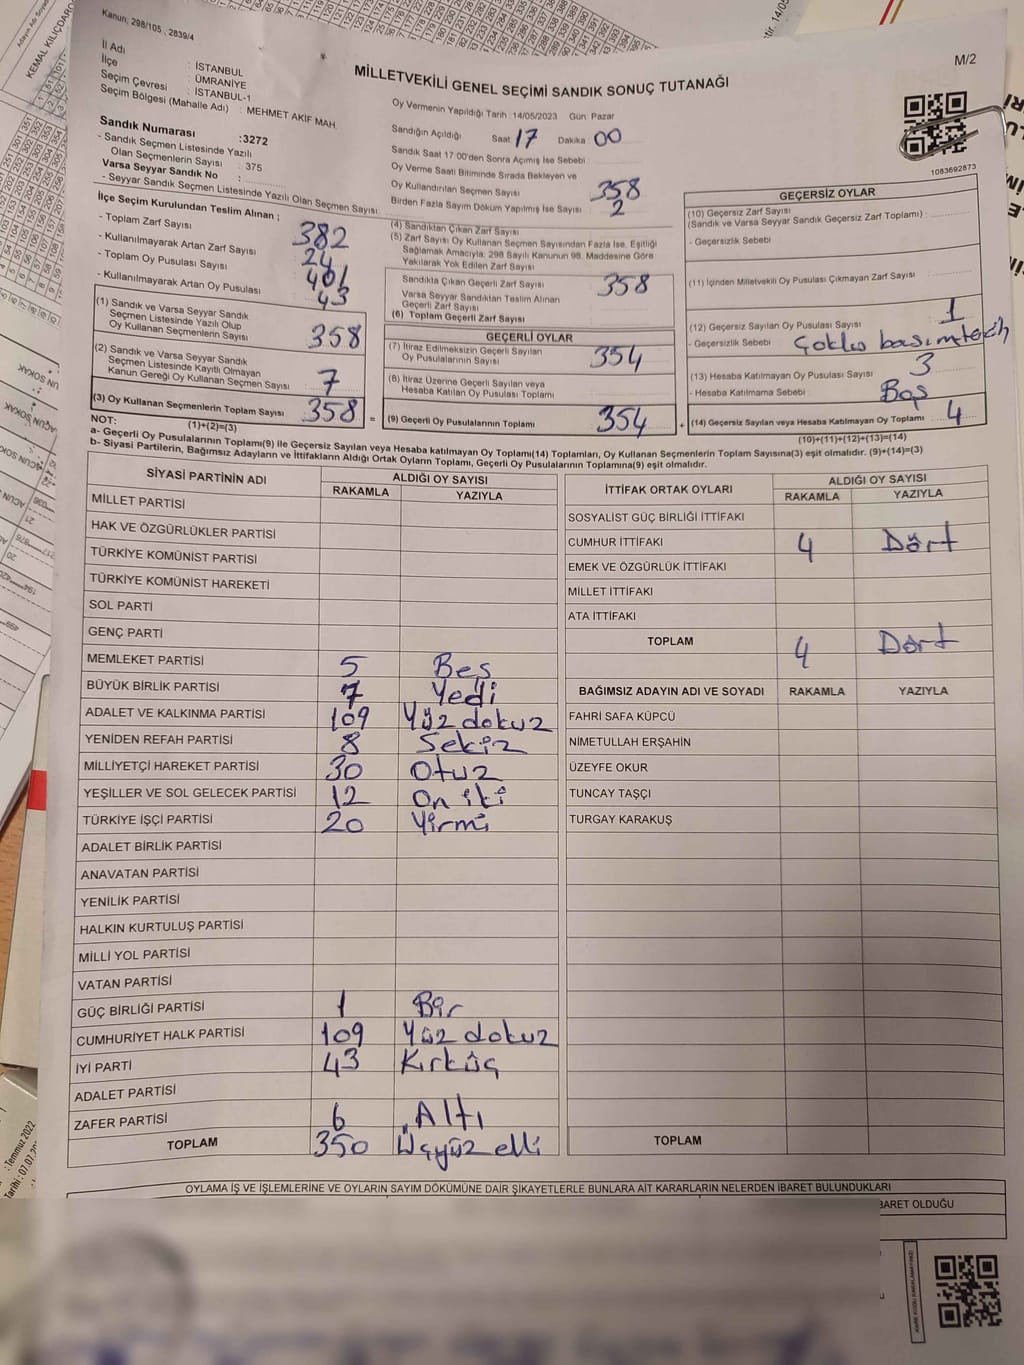 Kanun, 298/105 , 2839/4
M/2
MİLLETVEKİLİ GENEL SEÇİMİ SANDIK SONUÇ TUTANAĞI
İl Adı : İSTANBUL
İlçe : ÜMRANİYE
Seçim Çevresi : İSTANBUL-1
Seçim Bölgesi (Mahalle Adı) : MEHMET AKİF MAH.
Sandık Numarası :3272
- Sandık Seçmen Listesinde Yazılı
Olan Seçmenlerin Sayısı : 375
Varsa Seyyar Sandık No :
- Seyyar Sandık Seçmen Listesinde Yazılı Olan Seçmen Sayısı:
İlçe Seçim Kurulundan Teslim Alınan ;
- Toplam Zarf Sayısı 382
- Kullanılmayarak Artan Zarf Sayısı 24
- Toplam Oy Pusulası Sayısı 401
- Kullanılmayarak Artan Oy Pusulası 43
(1) Sandık ve Varsa Seyyar Sandık
Seçmen Listesinde Yazılı Olup
Oy Kullanan Seçmenlerin Sayısı 358
(2) Sandık ve Varsa Seyyar Sandık
Seçmen Listesinde Kayıtlı Olmayan
Kanun Gereği Oy Kullanan Seçmen Sayısı 7
(3) Oy Kullanan Seçmenlerin Toplam Sayısı 358 =
(1)+(2)=(3)
Oy Vermenin Yapıldığı Tarih :14/05/2023 Gün: Pazar
Sandığın Açıldığı Saat 17 Dakika 00
Sandık Saat 17:00'den Sonra Açımış İse Sebebi :
Oy Verme Saati Bitiminde Sırada Bekleyen ve
Oy Kullandırılan Seçmen Sayısı 358
Birden Fazla Sayım Döküm Yapılmış İse Sayısı 2
(4) Sandıktan Çıkan Zarf Sayısı
(5) Zarf Sayısı Oy Kullanan Seçmen Sayısından Fazla İse, Eşitliği
Sağlamak Amacıyla; 298 Sayılı Kanunun 98. Maddesine Göre
Yakılarak Yok Edilen Zarf Sayısı
Sandıkta Çıkan Geçerli Zarf Sayısı 358
Varsa Seyyar Sandıktan Teslim Alınan
Geçerli Zarf Sayısı
(6) Toplam Geçerli Zarf Sayısı
GEÇERLİ OYLAR
(7) İtiraz Edilmeksizin Geçerli Sayılan
Oy Pusulalarının Sayısı 354
(8) İtiraz Üzerine Geçerli Sayılan veya
Hesaba Katılan Oy Pusulası Toplamı
(9) Geçerli Oy Pusulalarının Toplamı 354 +
1083692873
GEÇERSİZ OYLAR
(10) Geçersiz Zarf Sayısı
(Sandık ve Varsa Seyyar Sandık Geçersiz Zarf Toplamı) :
- Geçersizlik Sebebi
(11) İçinden Milletvekili Oy Pusulası Çıkmayan Zarf Sayısı
(12) Geçersiz Sayılan Oy Pusulası Sayısı 1
- Geçersizlik Sebebi Çoklu basım tercih
(13) Hesaba Katılmayan Oy Pusulası Sayısı 3
- Hesaba Katılmama Sebebi : Boş
(14) Geçersiz Sayılan veya Hesaba Katılmayan Oy Toplamı 4
(10)+(11)+(12)+(13)=(14)
NOT:
a- Geçerli Oy Pusulalarının Toplamı(9) ile Geçersiz Sayılan veya Hesaba katılmayan Oy Toplamı(14) Toplamları, Oy Kullanan Seçmenlerin Toplam Sayısına(3) eşit olmalıdır. (9)+(14)=(3)
b- Siyasi Partilerin, Bağımsız Adayların ve İttifakların Aldığı Ortak Oyların Toplamı, Geçerli Oy Pusulalarının Toplamına(9) eşit olmalıdır.
SİYASİ PARTİNİN ADI ALDIĞI OY SAYISI
RAKAMLA YAZIYLA
MİLLET PARTİSİ
HAK VE ÖZGÜRLÜKLER PARTİSİ
TÜRKİYE KOMÜNİST PARTİSİ
TÜRKİYE KOMÜNİST HAREKETİ
SOL PARTİ
GENÇ PARTİ
MEMLEKET PARTİSİ 5 Beş
BÜYÜK BİRLİK PARTİSİ 7 Yedi
ADALET VE KALKINMA PARTİSİ 109 Yüz dokuz
YENİDEN REFAH PARTİSİ 8 Sekiz
MİLLİYETÇİ HAREKET PARTİSİ 30 Otuz
YEŞİLLER VE SOL GELECEK PARTİSİ 12 On iki
TÜRKİYE İŞÇİ PARTİSİ 20 Yirmi
ADALET BİRLİK PARTİSİ
ANAVATAN PARTİSİ
YENİLİK PARTİSİ
HALKIN KURTULUŞ PARTİSİ
MİLLİ YOL PARTİSİ
VATAN PARTİSİ
GÜÇ BİRLİĞİ PARTİSİ 1 Bir
CUMHURİYET HALK PARTİSİ 109 Yüz dokuz
İYİ PARTİ 43 Kırküç
ADALET PARTİSİ
ZAFER PARTİSİ 6 Altı
TOPLAM 350 Üçyüz elli
İTTİFAK ORTAK OYLARI ALDIĞI OY SAYISI
RAKAMLA YAZIYLA
SOSYALİST GÜÇ BİRLİĞİ İTTİFAKI
CUMHUR İTTİFAKI 4 Dört
EMEK VE ÖZGÜRLÜK İTTİFAKI
MİLLET İTTİFAKI
ATA İTTİFAKI
TOPLAM 4 Dört
BAĞIMSIZ ADAYIN ADI VE SOYADI RAKAMLA YAZIYLA
FAHRİ SAFA KÜPCÜ
NİMETULLAH ERŞAHİN
ÜZEYFE OKUR
TUNCAY TAŞÇI
TURGAY KARAKUŞ
TOPLAM
OYLAMA İŞ VE İŞLEMLERİNE VE OYLARIN SAYIM DÖKÜMÜNE DAİR ŞİKAYETLERLE BUNLARA AİT KARARLARIN NELERDEN İBARET BULUNDUKLARI
BARET OLDUĞU